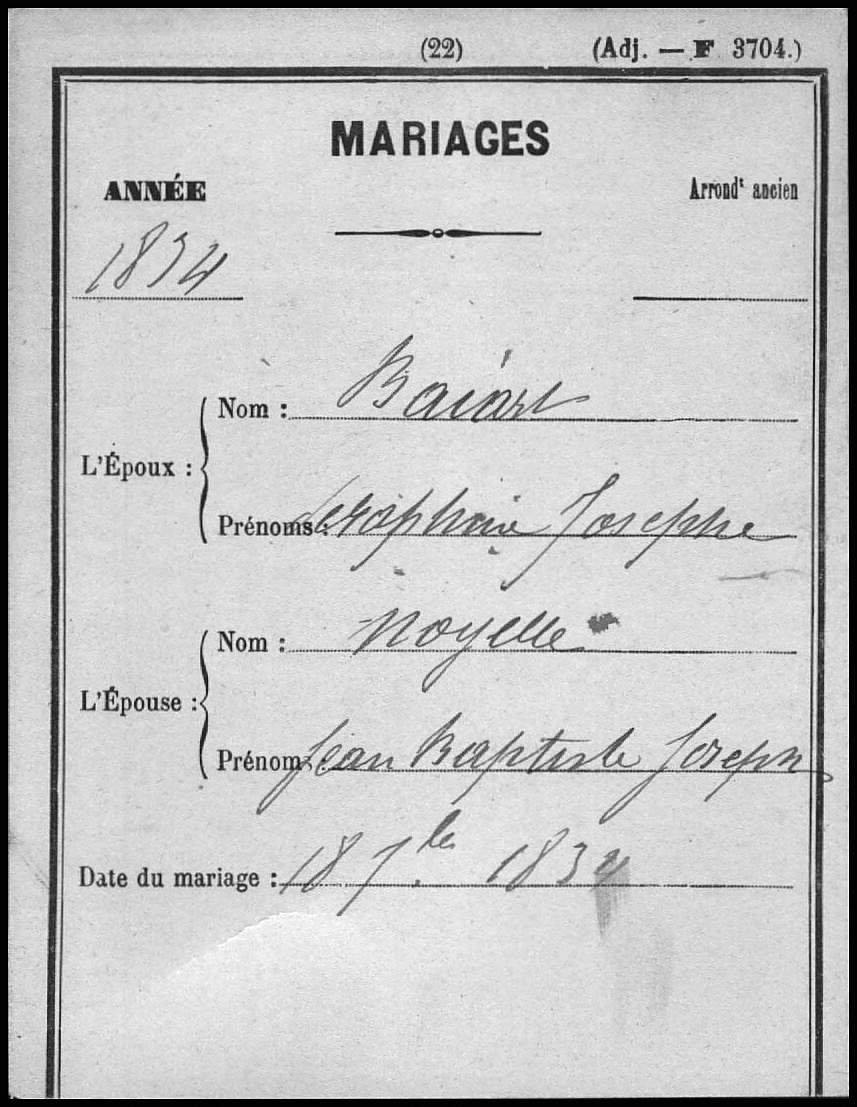 (22) (Adj. — F 3704.)
MARIAGES
ANNÉE Arrondt ancien
1834
L'Époux :
Nom : Baiart
Prénoms : Seraphine Josephe
L'Épouse :
Nom : Noyelle
Prénoms : Jean Baptiste Joseph
Date du mariage : 18 7bre 1834